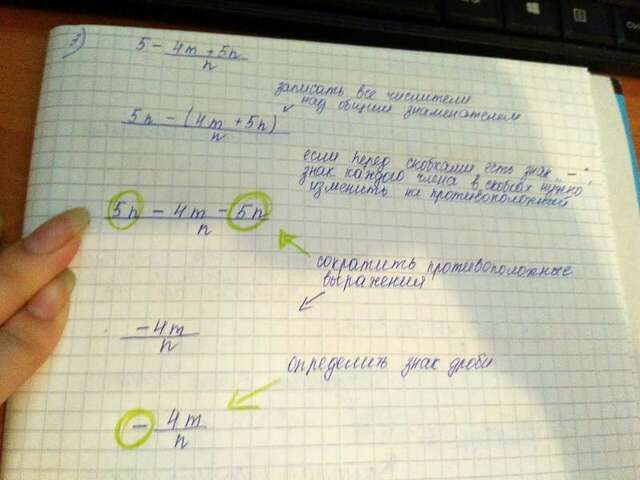 3)
5 - (4m + 5n)/n
записать все числители
над общим знаменателем
(5n - (4m + 5n))/n
если перед скобками есть знак „-“
знак каждого члена в скобках нужно
изменить на противоположный
(5n - 4m - 5n)/n
сократить противоположные
выражения
(-4m)/n
определить знак дроби
- 4m/n